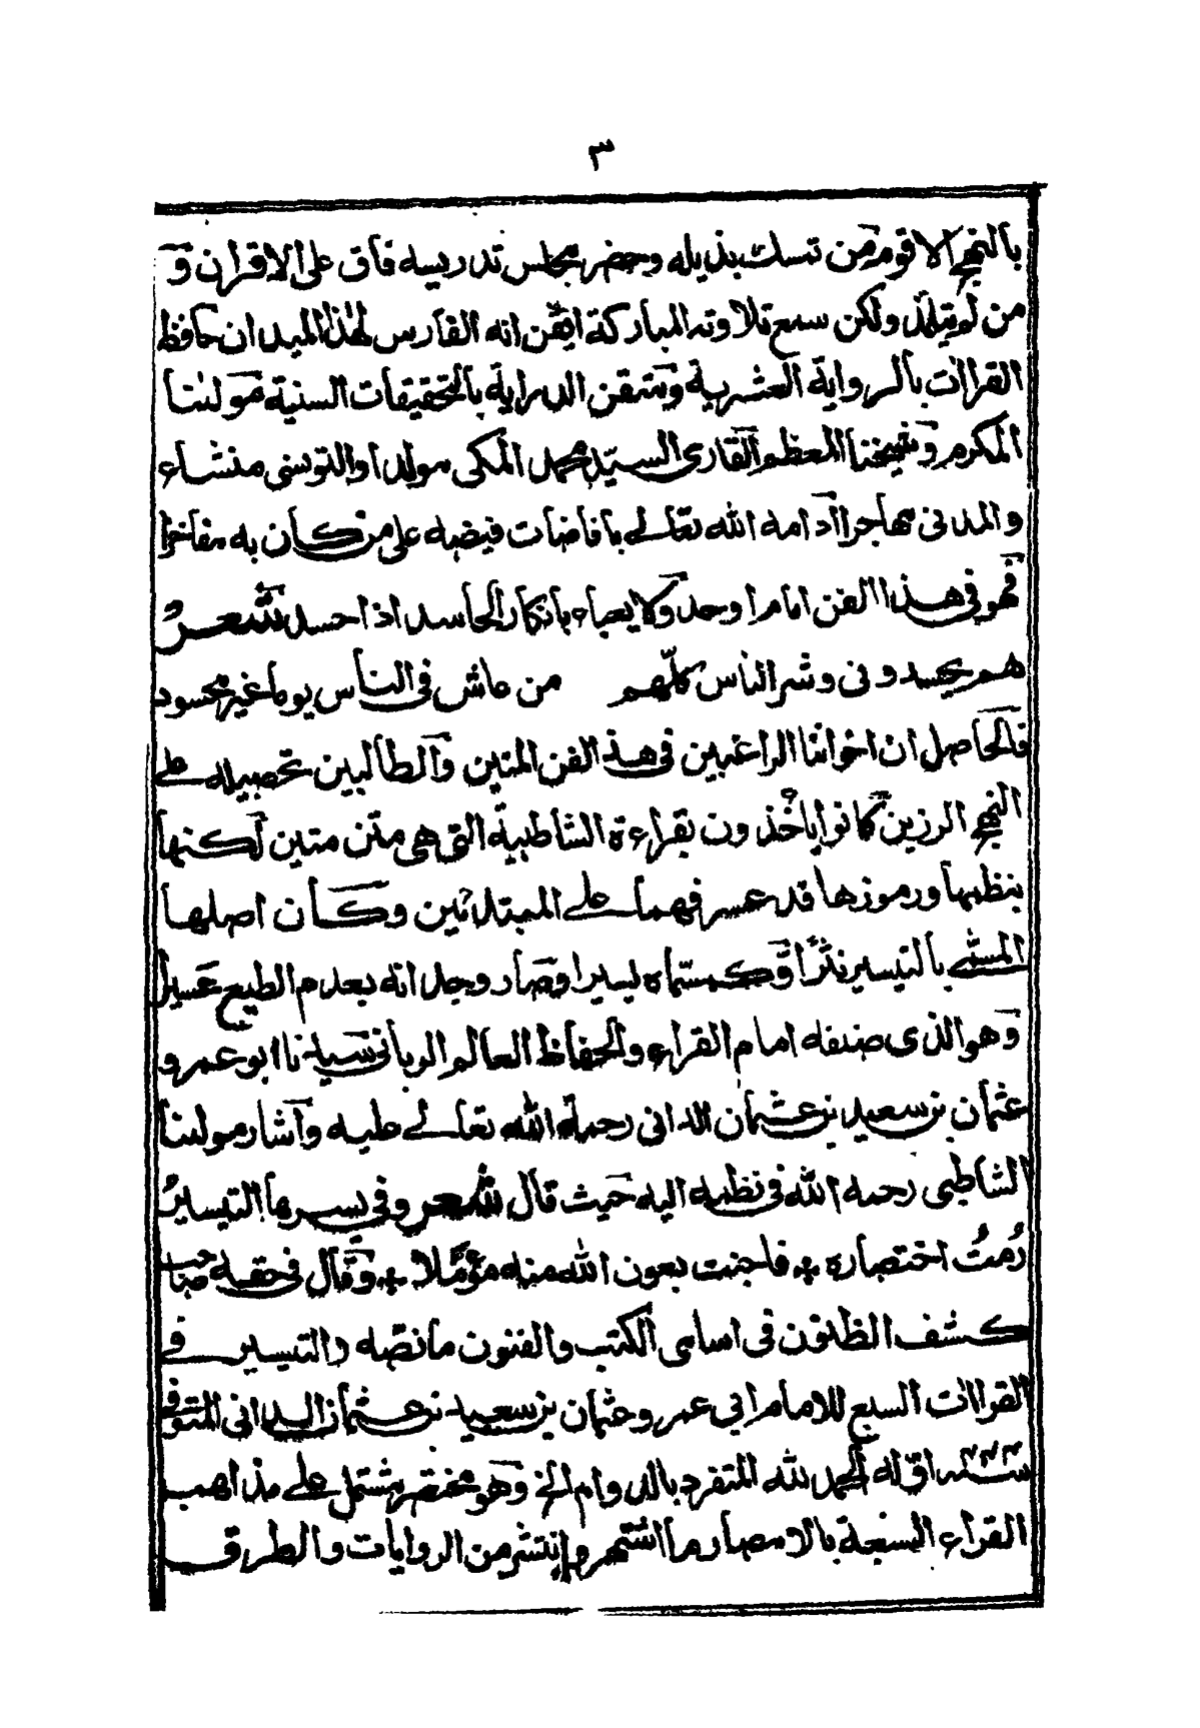 ٣
بالنهج الاقوم من تمسك بذيله وحضر مجلس تدريسه فاق على الاقران و
من لم يتلمذ ولكن سمع تلاوته المباركة ايقن انه الفارس لهذا الميدان حافظ
القراات بالرواية العشرية ومتقن الدراية بالتحقيقات السنية مولٰنا
المكرم وشيخنا المعظم القارى السيد محمد المكى مولدا والتونسى منشاء
والمدنى مهاجرا ادامه الله تعالے بافاضات فيضه على من كان به مفاخرا
فهو فى هذا الفن امام اوحد ولا يعباء بانكار الحاسد اذا حسد شعرٌ
هم يحسدونى وشر الناس كلّهم من عاش فى الناس يوما غير محسود
فالحاصل ان اخواننا الراغبين فى هذ الفن المتين والطالبين تحصيله علے
النهج الرزين كانوا ياخذون بقراءة الشاطبية التى هى متن متين لكنها
بنظمها ورموزها قد عسر فهمها علے المبتدئين وكان اصلها
المسمّے بالتيسير نثرًا وكمسمّاه يسيرا وصار وجدانه بعدم الطبع عسيرا
وهو الذى صنفه امام القراء والحفاظ العالم الربانى سيدنا ابو عمرو
عثمان بن سعيد بن عثمان الدانى رحمة الله تعالے عليه واشار مولٰنا
الشاطبى رحمه الله فى نظمه اليه حيث قال شعر وفى يسرها التيسيرُ
رُمتُ اختصاره ؞ فاجنت بعون الله منه مؤمّلا ؞ وقال فى حقه صاحب
كشف الظنون فى اسامى الكتب والفنون ما نصّه والتيسير فے
القراات السبع للامام ابي عمرو عثمان بن سعيد بن عثمان الدانى المتوفى
سنة ٤٤٤ اوله الحمد لله المتفرد بالدوام الخ وهو مختصر مشتمل علے مذاهب
القراء السبعة بالامصار وما اشتهر وانتشر من الروايات والطرق